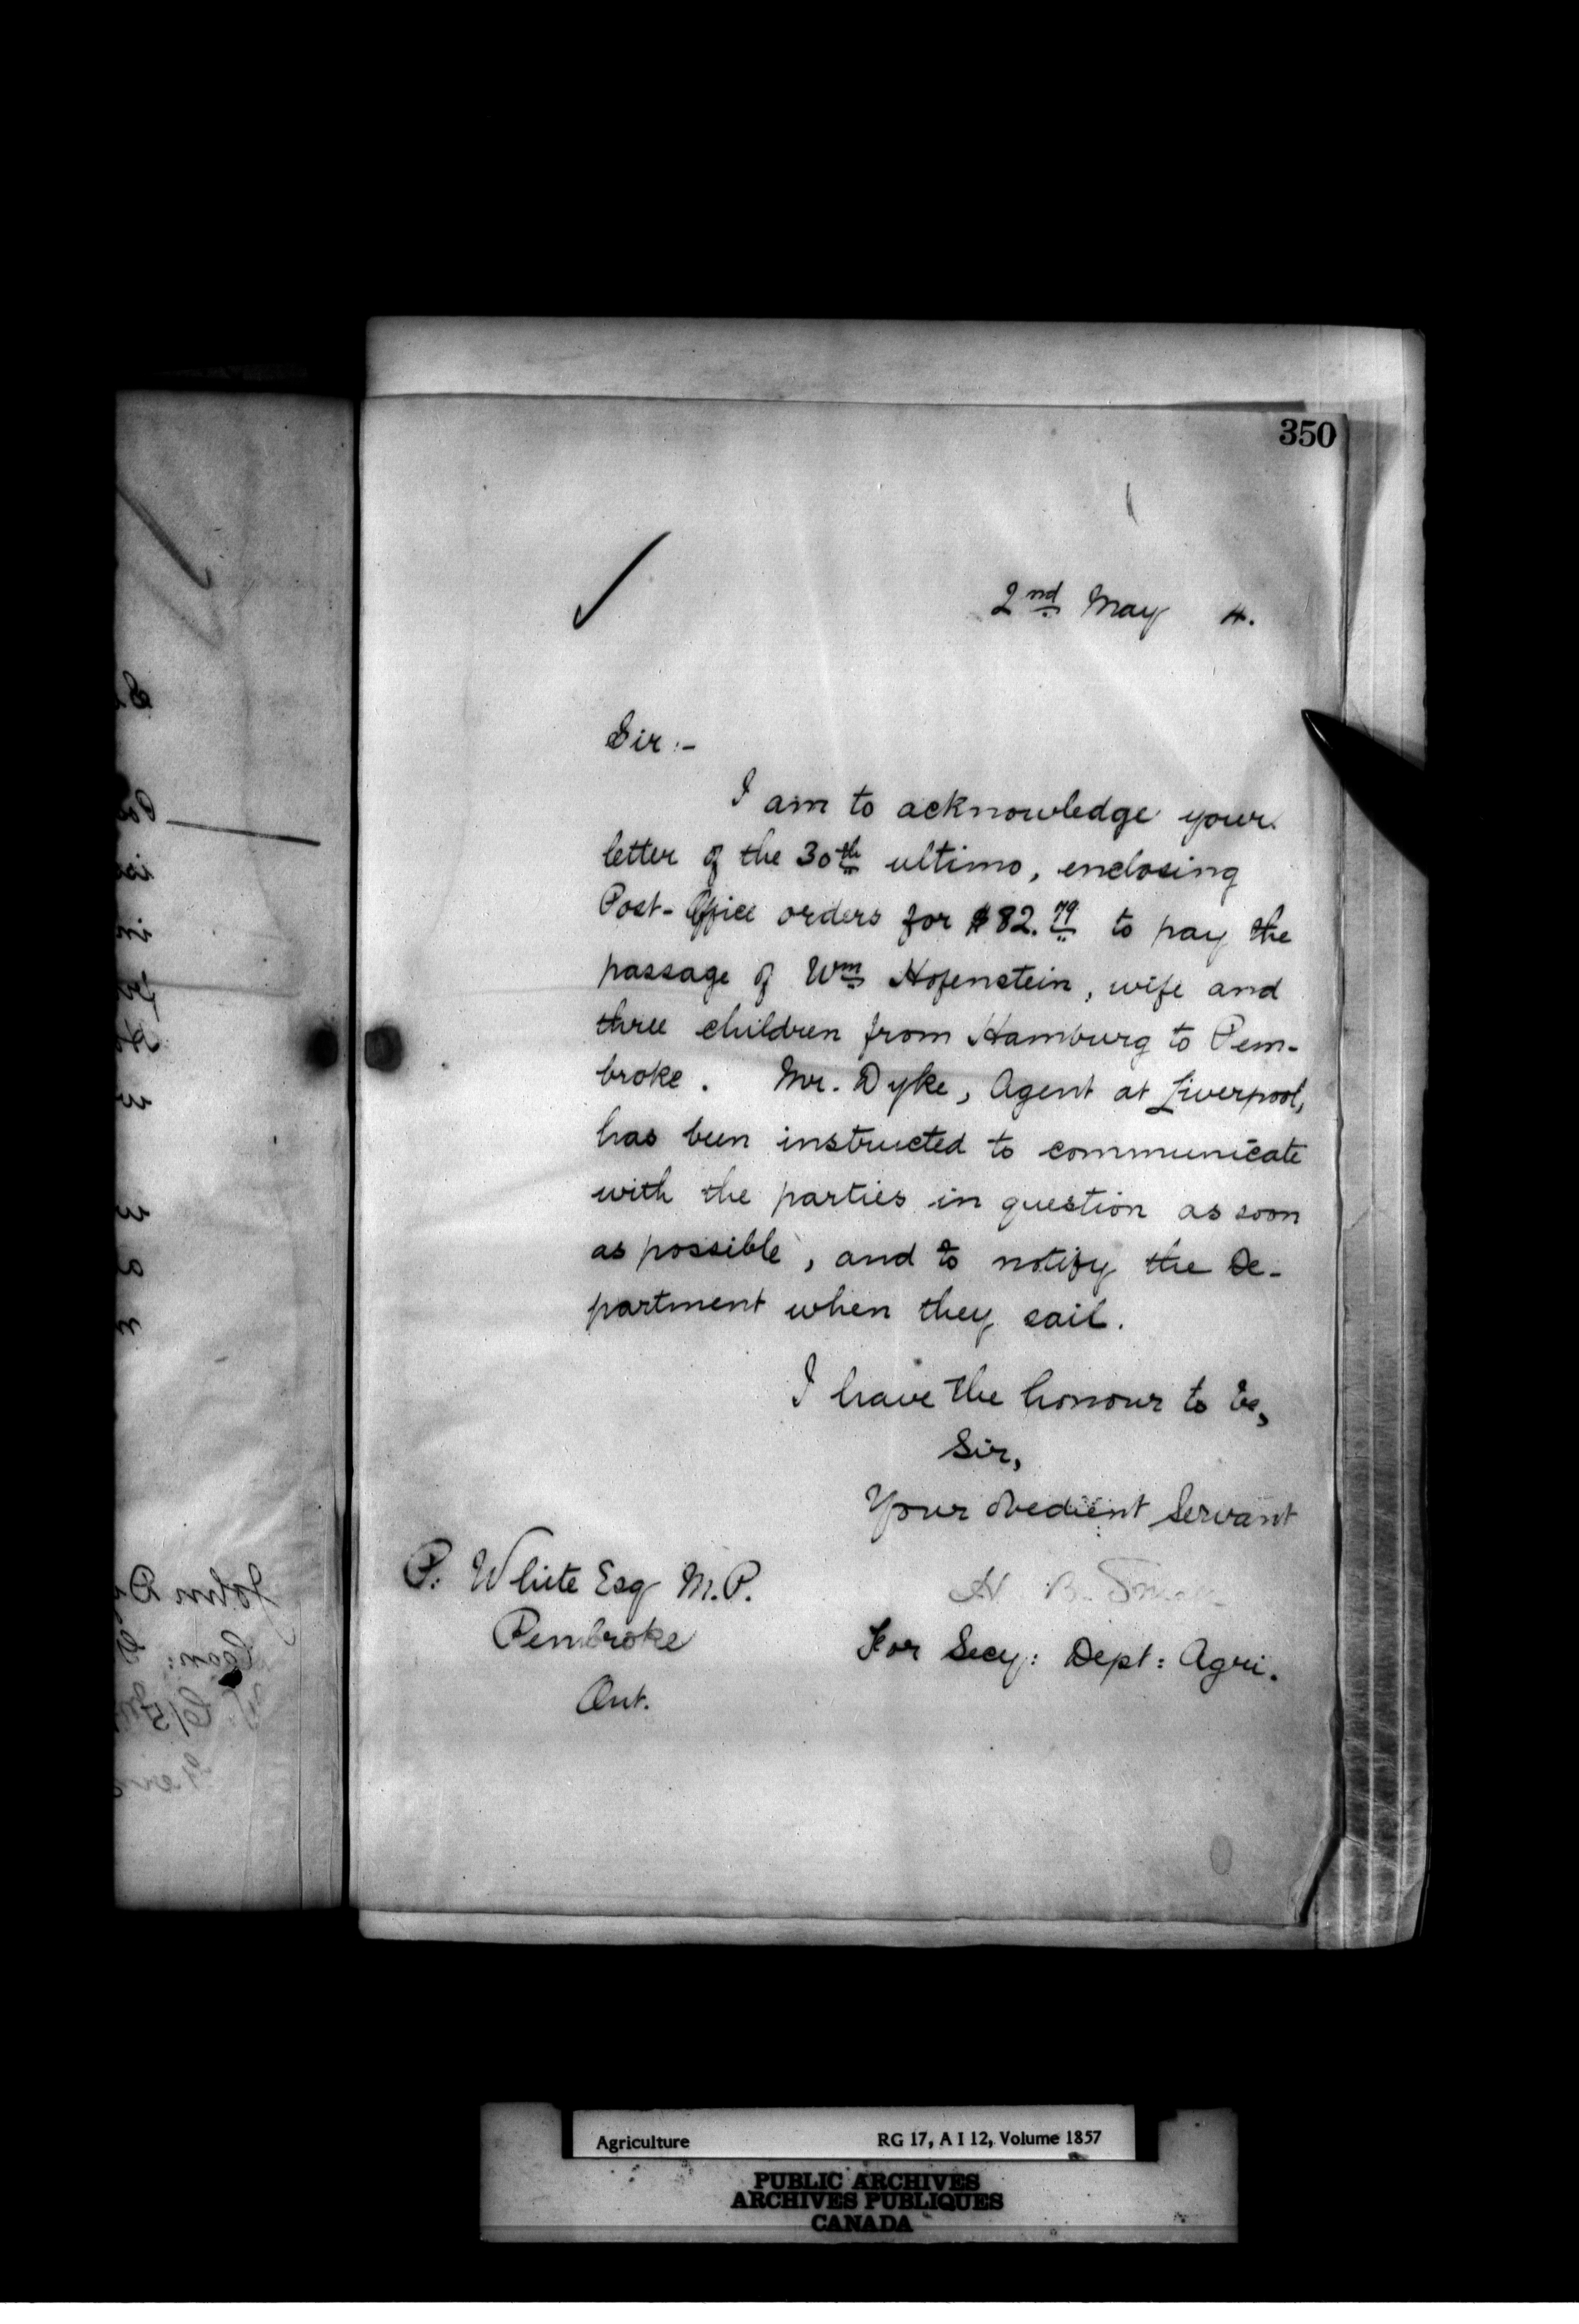 350
2nd May 4.
Sir:-
I am to acknowledge your
letter of the 30th ultimo, enclosing
Post-Office orders for $82.79 to pay the
passage of Wm Hofenstein, wife and
three children from Hamburg to Pem-
broke. Mr. Dyke, Agent at Liverpool,
has been instructed to communicate
with the parties in question as soon
as possible, and to notify the De-
partment when they sail.
I have the honour to be,
Sir,
Your obedient Servant
H. B. Small
For Secy: Dept: Agri.
P. White Esq M.P.
Pembroke
Ont.
Agriculture RG 17, A I 12, Volume 1857
PUBLIC ARCHIVES
ARCHIVES PUBLIQUES
CANADA